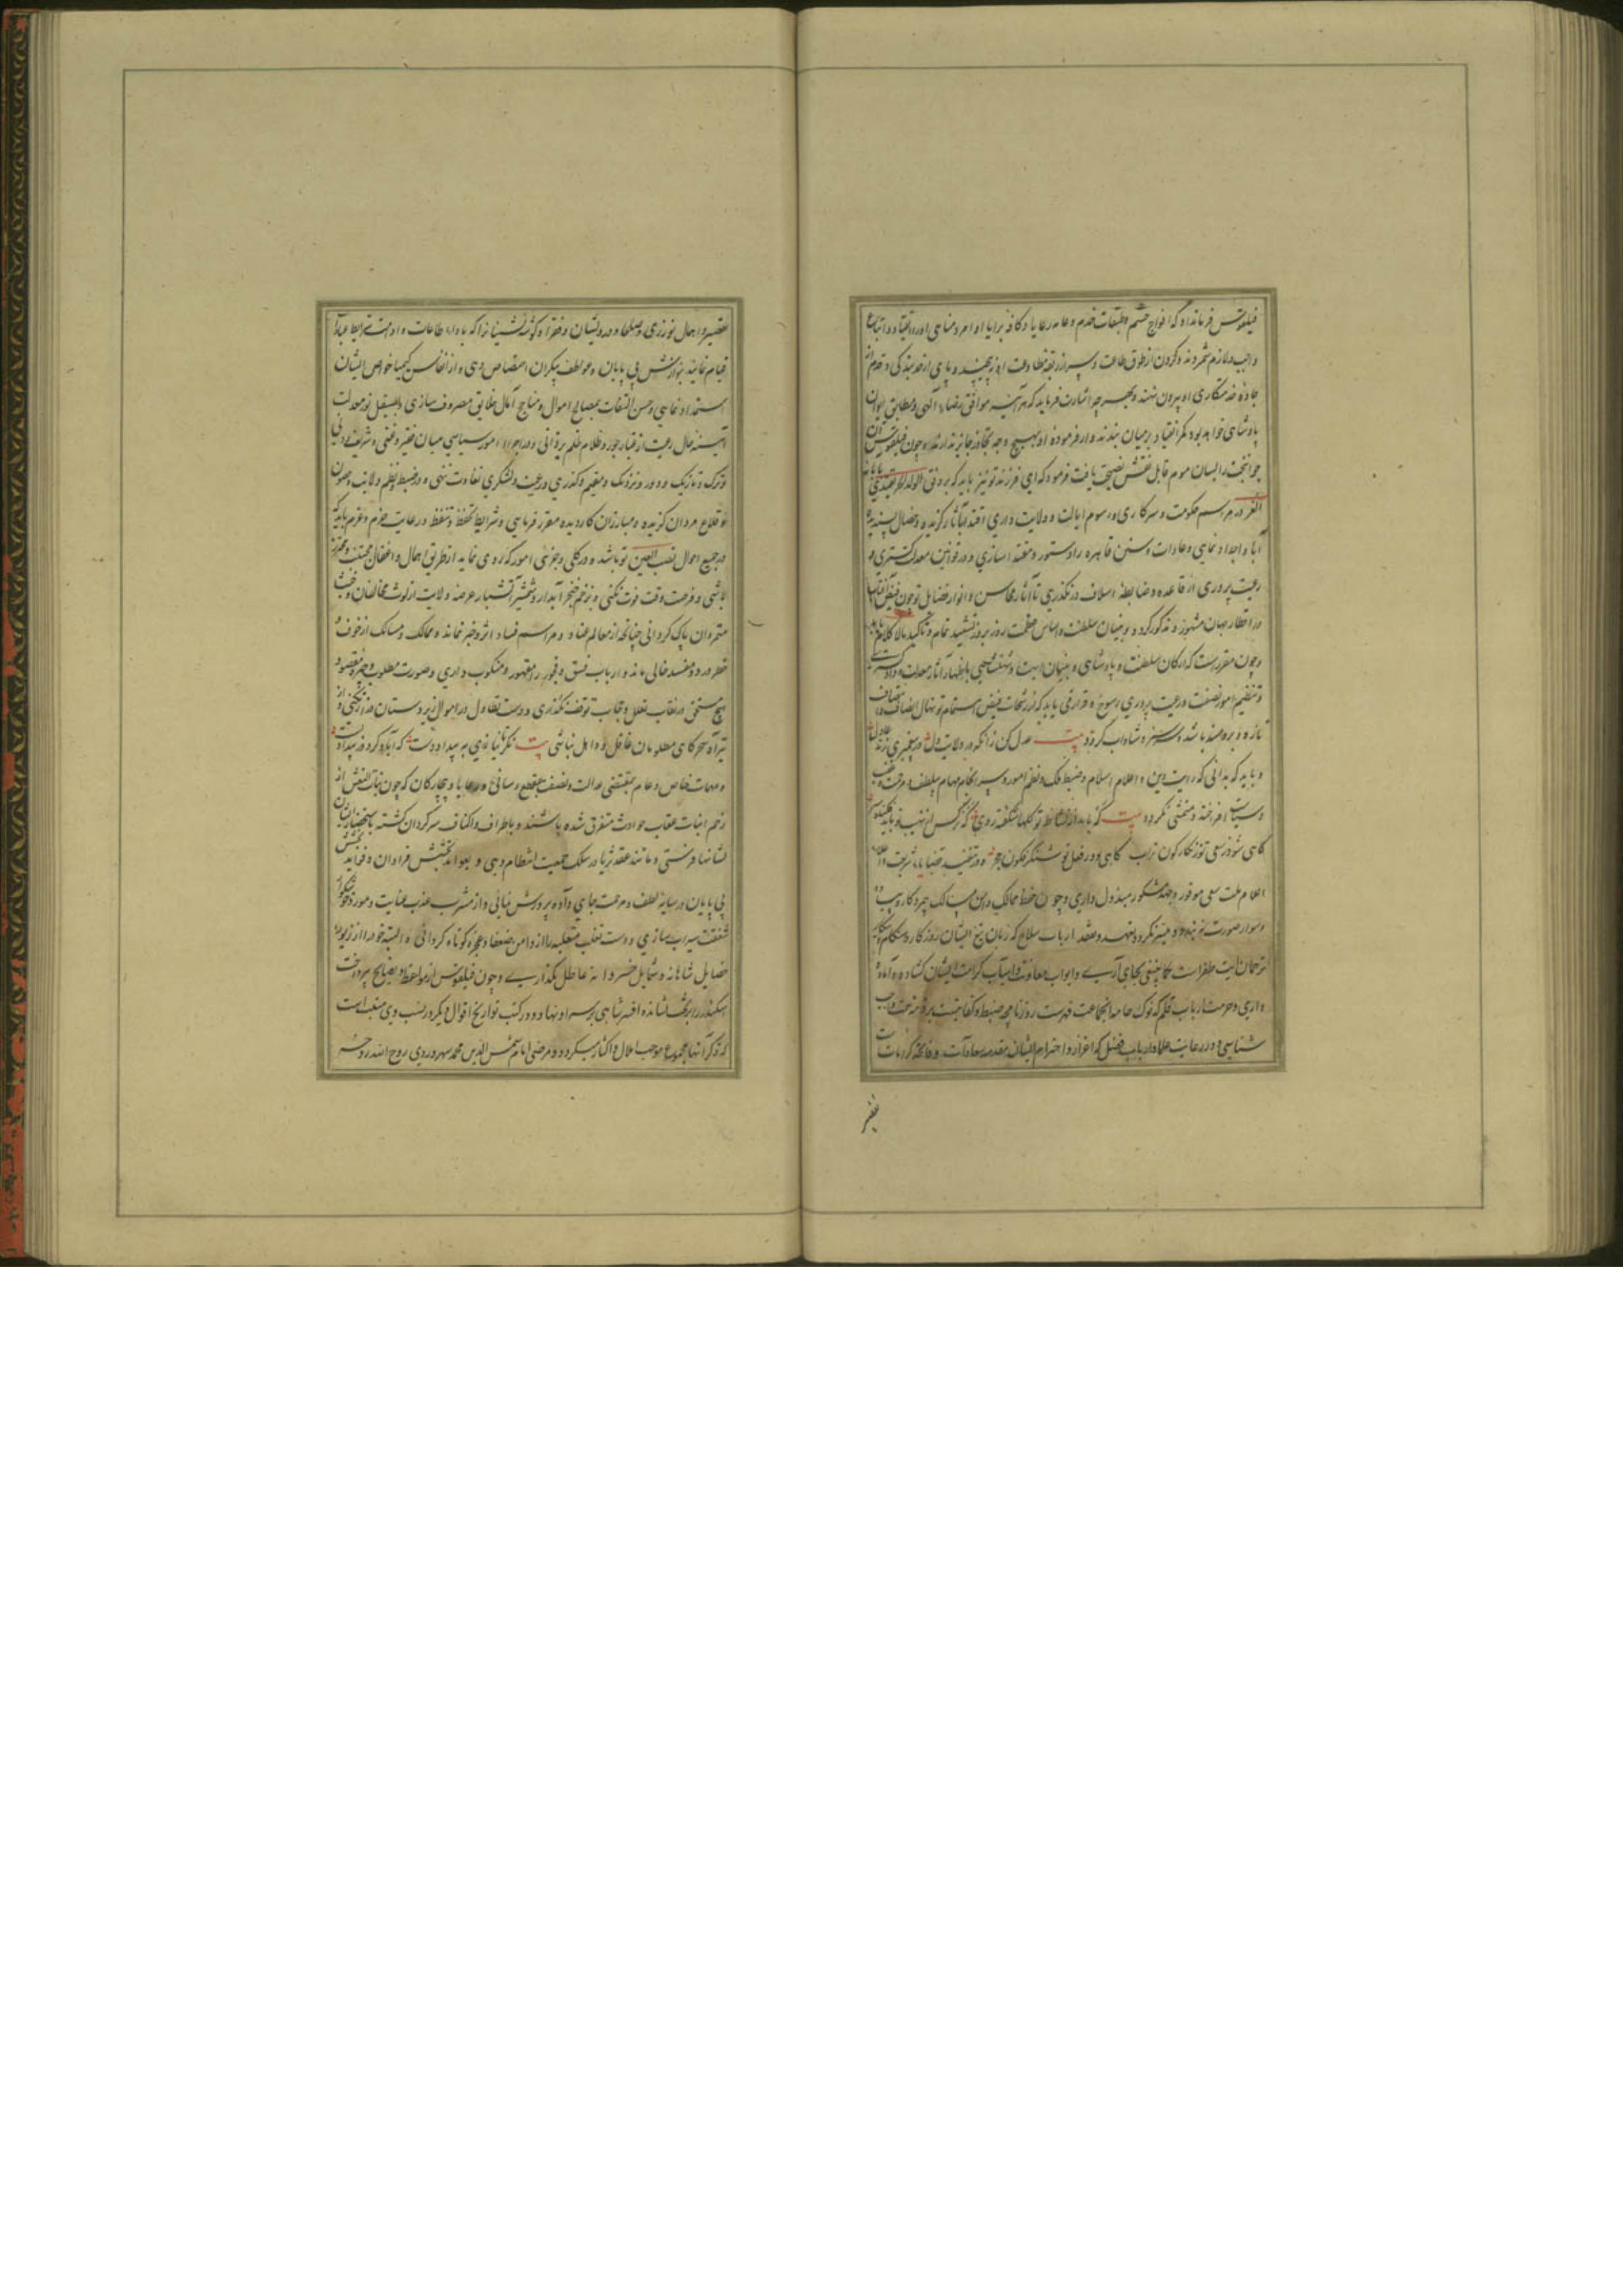 فیلقوس فرمانداد که افواج حشم و طبقات خدم و عامه رعایا و کافه برایا اوامر و مناهی او را انقیاد و اتباع
واجب و لازم شمرند و گردن از طوق طاعت و سر از ربقه مطاوعت او نپیچند و پای از حد بندگی و قدم از
جاده خدمتکاری او بیرون ننهند و بهر چه اشارت فرماید که هر آینه موافق رضاء الهی و مطابق
پادشاهی خواهد بود کمر انقیاد بر میان بندند و از فرموده او بهیچ وجه تجاوز جایز ندارند و چون فیلقوس
جوانبخت را بسان موم قابل نقش نصیحت یافت فرمود که ای فرزند تو نیز باید که بر وفق الولد الحر یقتدی
الغر در مراسم حکومت و سرکاری و رسوم ایالت و ولایت داری اقتدا بآثار گزیده و خصال پسندیده
آبا و اجداد نمایی و عادات و سنن قاهره را دستور و مقتدا سازی و در قوانین معدلت گستری و
رعیت پروری از قاعده و ضابطه اسلاف در نگذری تا آثار محاسن و انوار فضایل تو چون فیض آفتاب
در اقطار جهان مشهور و مذکور گردد و بنیان سلطنت و اساس عظمت روز بروز تشیید تمام و تاکید مالا کلام یابد
و چون مقررست که ارکان سلطنت و پادشاهی و بنیان ابهت و شهنشاهی باظهار آثار معدلت و دادگستری
و تنظیم امور نصفت و رعیت پروری رسوخ و قرار می یابد که از رشحات فیض اهتمام تو نهال انصاف
تازه و برومند باشد و سرسبز و شاداب گردد بیت عدل کن زانکه در ولایت دل در پیغمبری زند عادل
و باید که بدانی که رایت دین و اعلام اسلام و ضبط ملک و نظم امور و سرانجام مهام بی لطف و مرحمت
و سیاست افروخته و متمشی نگردد بیت گه باید از نشاط تو گلها شگفته روی گه نرگس از نهیب تو باید
گاهی شود ز سعی تو زنگارگون تراب گاهی بود ز فصل تو شنگرفگون حجر و در تنفیذ قضایاء شریعت و اعلاء
اعلام ملت سعی موفور و جهد مشکور مبذول داری و چون حفظ ممالک و امن مسالک بی مددکار و سپاه
و سوار صورت نه بندد و میسر نگردد بتعهد و تفقد ارباب سلاح که زبان تیغ ایشان روز کار و هنگام
ترجمان آیت ظفرست کما ینبغی بجای آری و ابواب معاونت و اسباب کرامت ایشان گشاده و آماده
داری و حرمت ارباب قلم که نوک خامه آنجماعت فهرست روزنامچه ضبط و کفایتست بر ذمت همت واجب
شناسی و در رعایت علما و ارباب فضل که اعزاز و احترام ایشان مقدمه سعادات و فاتحه کرامات
تقصیر
تقصیر و اهمال نورزی و صلحا و درویشان و فقرا و گوشه نشینان را که باداء طاعات و اقامت شرایط عبادات
قیام نمایند بنوازش بی پایان و عواطف بیکران اختصاص دهی و از انفاس کیمیا خواص ایشان
استمداد نمایی و حسن التفات بمصالح اموال و مناجح آمال خلایق مصروف سازی و بصیقل نور معدلت
آینه حال رعیت از غبار جور و ظلام ظلم بزدانی و در اجراء امور سیاسی میان فقیر و غنی و شریف و دنی
و ترک و تازیک و دور و نزدیک و مقیم و گذری و رعیت و لشکری تفاوت ننهی و در ضبط و نظم ولایت و حصون
و قلاع مردان گزیده و مبارزان کاردیده مقرر فرمایی و شرایط تحفظ و تیقظ و رعایت حزم و عزم باید که
در جمیع احوال نصب العین تو باشد و در کلی و جزئی امور که روی نماید از طریق اهمال و اغفال مجتنب و محترز
باشی و فرصت وقت فوت نکنی و بزخم خنجر آبدار و شمشیر آتشبار عرصه ولایت از لوث مخالفان و خبث
متمردان پاک گردانی چنانکه از معالم عناد و مراسم فساد اثر و خبر نماند و ممالک و مسالک از خوف و
خطر دزد و مفسد خالی ماند و ارباب فسق و فجور را مقهور و منکوب داری و صورت مطلوب و چهره مقصود
هیچ مستحق در نقاب تعلل و حجاب توقف نگذاری و دست تطاول در اموال زیردستان دراز نکنی و از
تیر آه سحرگاهی مظلومان غافل و ذاهل نباشی بیت نگر تا نیازی به بیداد دست که آباد گردد ز بیداد پست
و مهمات خاص و عام بمقتضی عدالت و نصفت بقطع رسانی و رعایا و بیچارگان که چون بنات النعش از
زخم انیاب عقاب حوادث متفرق شده باشند و باطراف و اکناف سرگردان گشته باستحضار ایشان
نشانها فرستی و مانند عقد ثریا در سلک جمعیت انتظام دهی و بعواید بخشش فراوان و فواید
بی پایان در سایه لطف و مرحمت جای داده پرورش نمائی و از مشرب عذب عنایت و مورد
شفقت سیراب سازی و دست تغلب متغلبه را از دامن ضعفا و عجزه کوتاه گردانی و البته خود را از زیور
خصایل شاهانه و شمایل خسروانه عاطل نگذاری و چون فیلقوس از مواعظ و نصایح پرداخت
اسکندر را بر تخت نشانده افسر شاهی بر سر او نهاد و در کتب تواریخ اقوال دیگر در نسب وی مثبت است
که ذکر آنها بمجموع موجب املال و اکثار میگردد و مرضی امام شمس الدین محمد سهروردی روح الله روحه